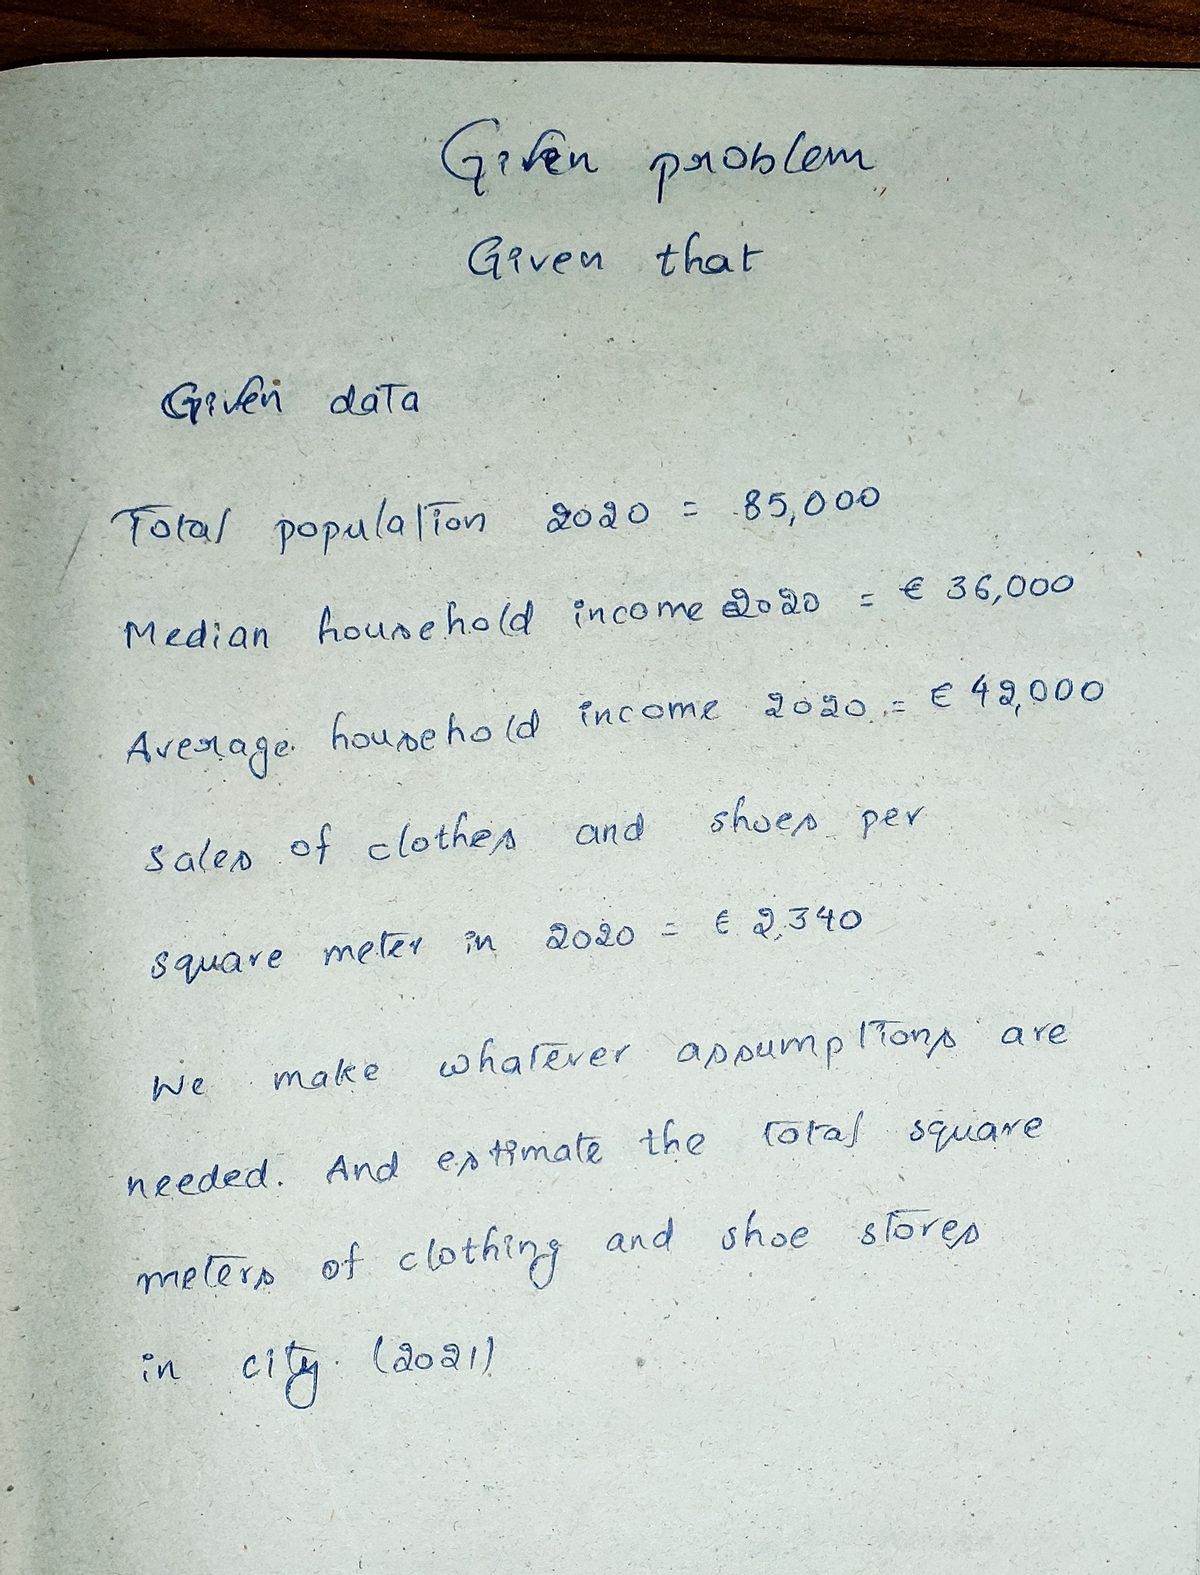 Given problem
Given that
Given data
Total population 2020 = 85,000
Median household income 2020 = € 36,000
Average household income 2020 = € 42,000
sales of clothes and shoes per
square meter in 2020 = € 2,340
We make whatever assumptions are
needed. And estimate the total square
meters of clothing and shoe stores
in city. (2021)